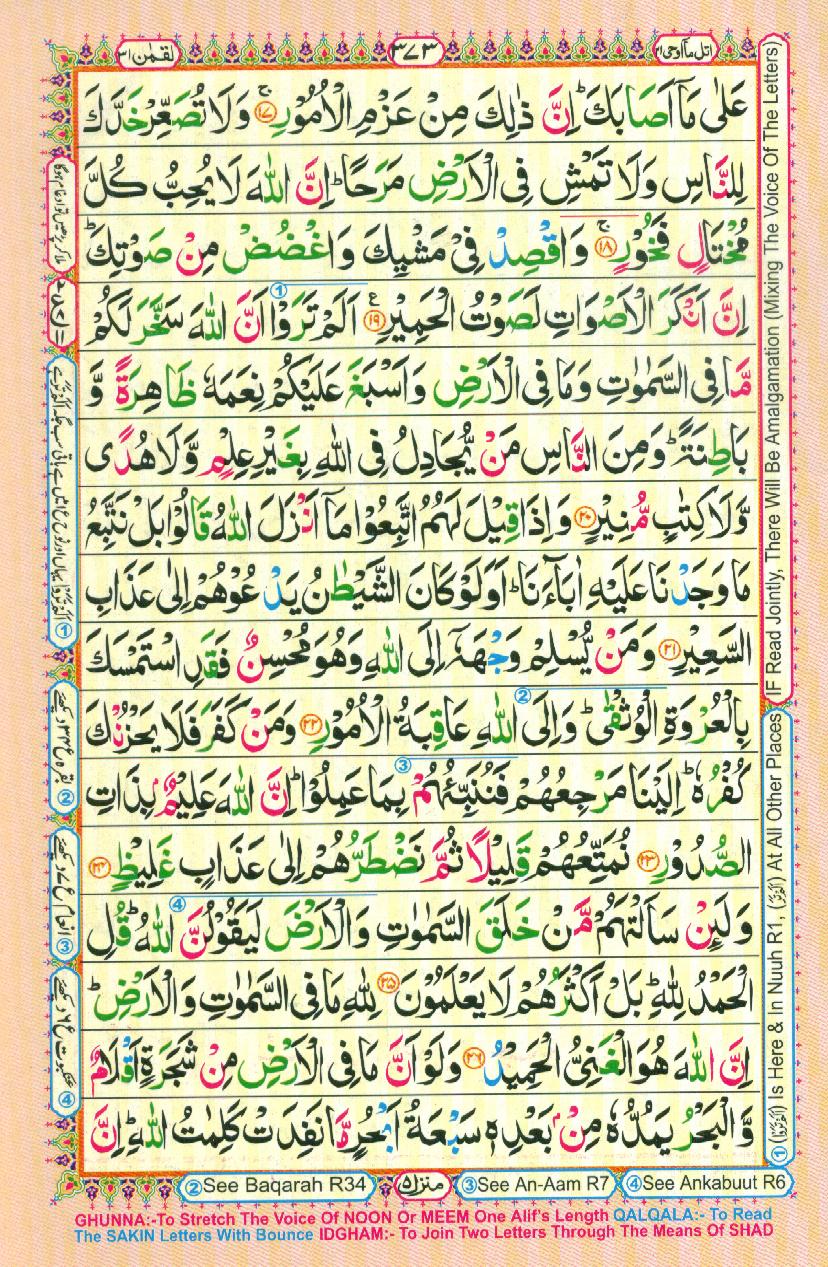 اتل مآ اوحی ۲۱
۳۷۳
لقمٰن ۳۱
عَلٰى مَاۤ اَصَابَكَ ؕ اِنَّ ذٰلِكَ مِنْ عَزْمِ الْاُمُوْرِ ۚ‏﴿۱۷﴾ وَلَا تُصَعِّرْ خَدَّكَ
لِلنَّاسِ وَلَا تَمْشِ فِى الْاَرْضِ مَرَحًا ؕ اِنَّ اللّٰهَ لَا يُحِبُّ كُلَّ
مُخْتَالٍ فَخُوْرٍ ۚ‏﴿۱۸﴾ وَاقْصِدْ فِىْ مَشْيِكَ وَاغْضُضْ مِنْ صَوْتِكَ ؕ
اِنَّ اَنْكَرَ الْاَصْوَاتِ لَصَوْتُ الْحَمِيْرِ ﴿۱۹﴾ ع ① اَلَمْ تَرَوْا اَنَّ اللّٰهَ سَخَّرَ لَكُمْ
مَّا فِى السَّمٰوٰتِ وَمَا فِى الْاَرْضِ وَاَسْبَغَ عَلَيْكُمْ نِعَمَهٗ ظَاهِرَةً وَّ
بَاطِنَةً ؕ وَمِنَ النَّاسِ مَنْ يُّجَادِلُ فِى اللّٰهِ بِغَيْرِ عِلْمٍ وَّلَا هُدًى
وَّلَا كِتٰبٍ مُّنِيْرٍ ﴿۲۰﴾ وَاِذَا قِيْلَ لَهُمُ اتَّبِعُوْا مَاۤ اَنْزَلَ اللّٰهُ قَالُوْا بَلْ نَتَّبِعُ
مَا وَجَدْنَا عَلَيْهِ اٰبَآءَنَا ؕ اَوَلَوْ كَانَ الشَّيْطٰنُ يَدْعُوْهُمْ اِلٰى عَذَابِ
السَّعِيْرِ ﴿۲۱﴾ وَمَنْ يُّسْلِمْ وَجْهَهٗۤ اِلَى اللّٰهِ وَهُوَ مُحْسِنٌ فَقَدِ اسْتَمْسَكَ
بِالْعُرْوَةِ الْوُثْقٰى ؕ ② وَاِلَى اللّٰهِ عَاقِبَةُ الْاُمُوْرِ ﴿۲۲﴾ وَمَنْ كَفَرَ فَلَا يَحْزُنْكَ
كُفْرُهٗ ؕ اِلَيْنَا مَرْجِعُهُمْ فَنُنَبِّئُهُمْ ③ بِمَا عَمِلُوْا ؕ اِنَّ اللّٰهَ عَلِيْمٌۢ بِذَاتِ
الصُّدُوْرِ ﴿۲۳﴾ نُمَتِّعُهُمْ قَلِيْلًا ثُمَّ نَضْطَرُّهُمْ اِلٰى عَذَابٍ غَلِيْظٍ ﴿۲۴﴾
وَلَئِنْ سَاَلْتَهُمْ مَّنْ خَلَقَ السَّمٰوٰتِ وَالْاَرْضَ ④ لَيَقُوْلُنَّ اللّٰهُ ؕ قُلِ
الْحَمْدُ لِلّٰهِ ؕ بَلْ اَكْثَرُهُمْ لَا يَعْلَمُوْنَ ﴿۲۵﴾ لِلّٰهِ مَا فِى السَّمٰوٰتِ وَالْاَرْضِ ؕ
اِنَّ اللّٰهَ هُوَ الْغَنِىُّ الْحَمِيْدُ ﴿۲۶﴾ وَلَوْ اَنَّ مَا فِى الْاَرْضِ مِنْ شَجَرَةٍ اَقْلَامٌ
وَّالْبَحْرُ يَمُدُّهٗ مِنْۢ بَعْدِهٖ سَبْعَةُ اَبْحُرٍ مَّا نَفِدَتْ كَلِمٰتُ اللّٰهِ ؕ اِنَّ
IF Read Jointly, There Will Be Amalgamation (Mixing The Voice Of The Letters)
① (اَلَمْ تَرَوْا) Is Here & In Nuuh R1, (اَلَمْ تَرَ) At All Other Places
②See Baqarah R34
منزل ۵
③See An-Aam R7
④See Ankabuut R6
GHUNNA:-To Stretch The Voice Of NOON Or MEEM One Alif's Length QALQALA:- To Read
The SAKIN Letters With Bounce IDGHAM:- To Join Two Letters Through The Means Of SHAD